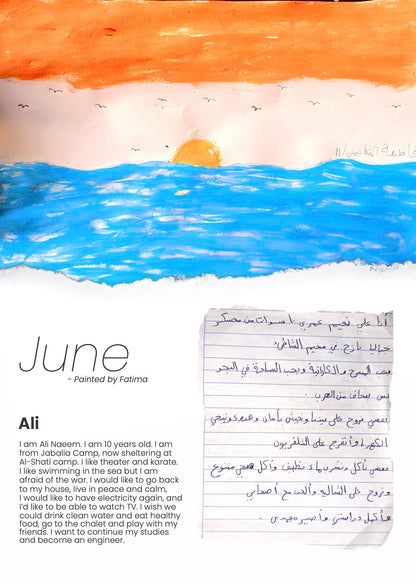 فاطمة
June
- Painted by Fatima
أنا علي نعيم عمري ١٠ سنوات من معسكر
جباليا نازح في مخيم الشاطئ.
بحب المسرح والكاراتية وبحب السباحة في البحر
بس بخاف من الحرب.
نفسي نروح على بيتنا ونعيش بأمان وهدوء وتيجي
الكهرباء وأتفرج على التلفزيون
نفسي نأكل ونشرب ماء نظيف وأكل صحي متنوع
ونروح على الشاليه وألعب مع أصحابي
وأكمل دراستي وأصير مهندس.
Ali
I am Ali Naeem. I am 10 years old. I am
from Jabalia Camp, now sheltering at
Al-Shati camp. I like theater and karate.
I like swimming in the sea but I am
afraid of the war. I would like to go back
to my house, live in peace and calm,
I would like to have electricity again, and
I'd like to be able to watch TV. I wish we
could drink clean water and eat healthy
food, go to the chalet and play with my
friends. I want to continue my studies
and become an engineer.